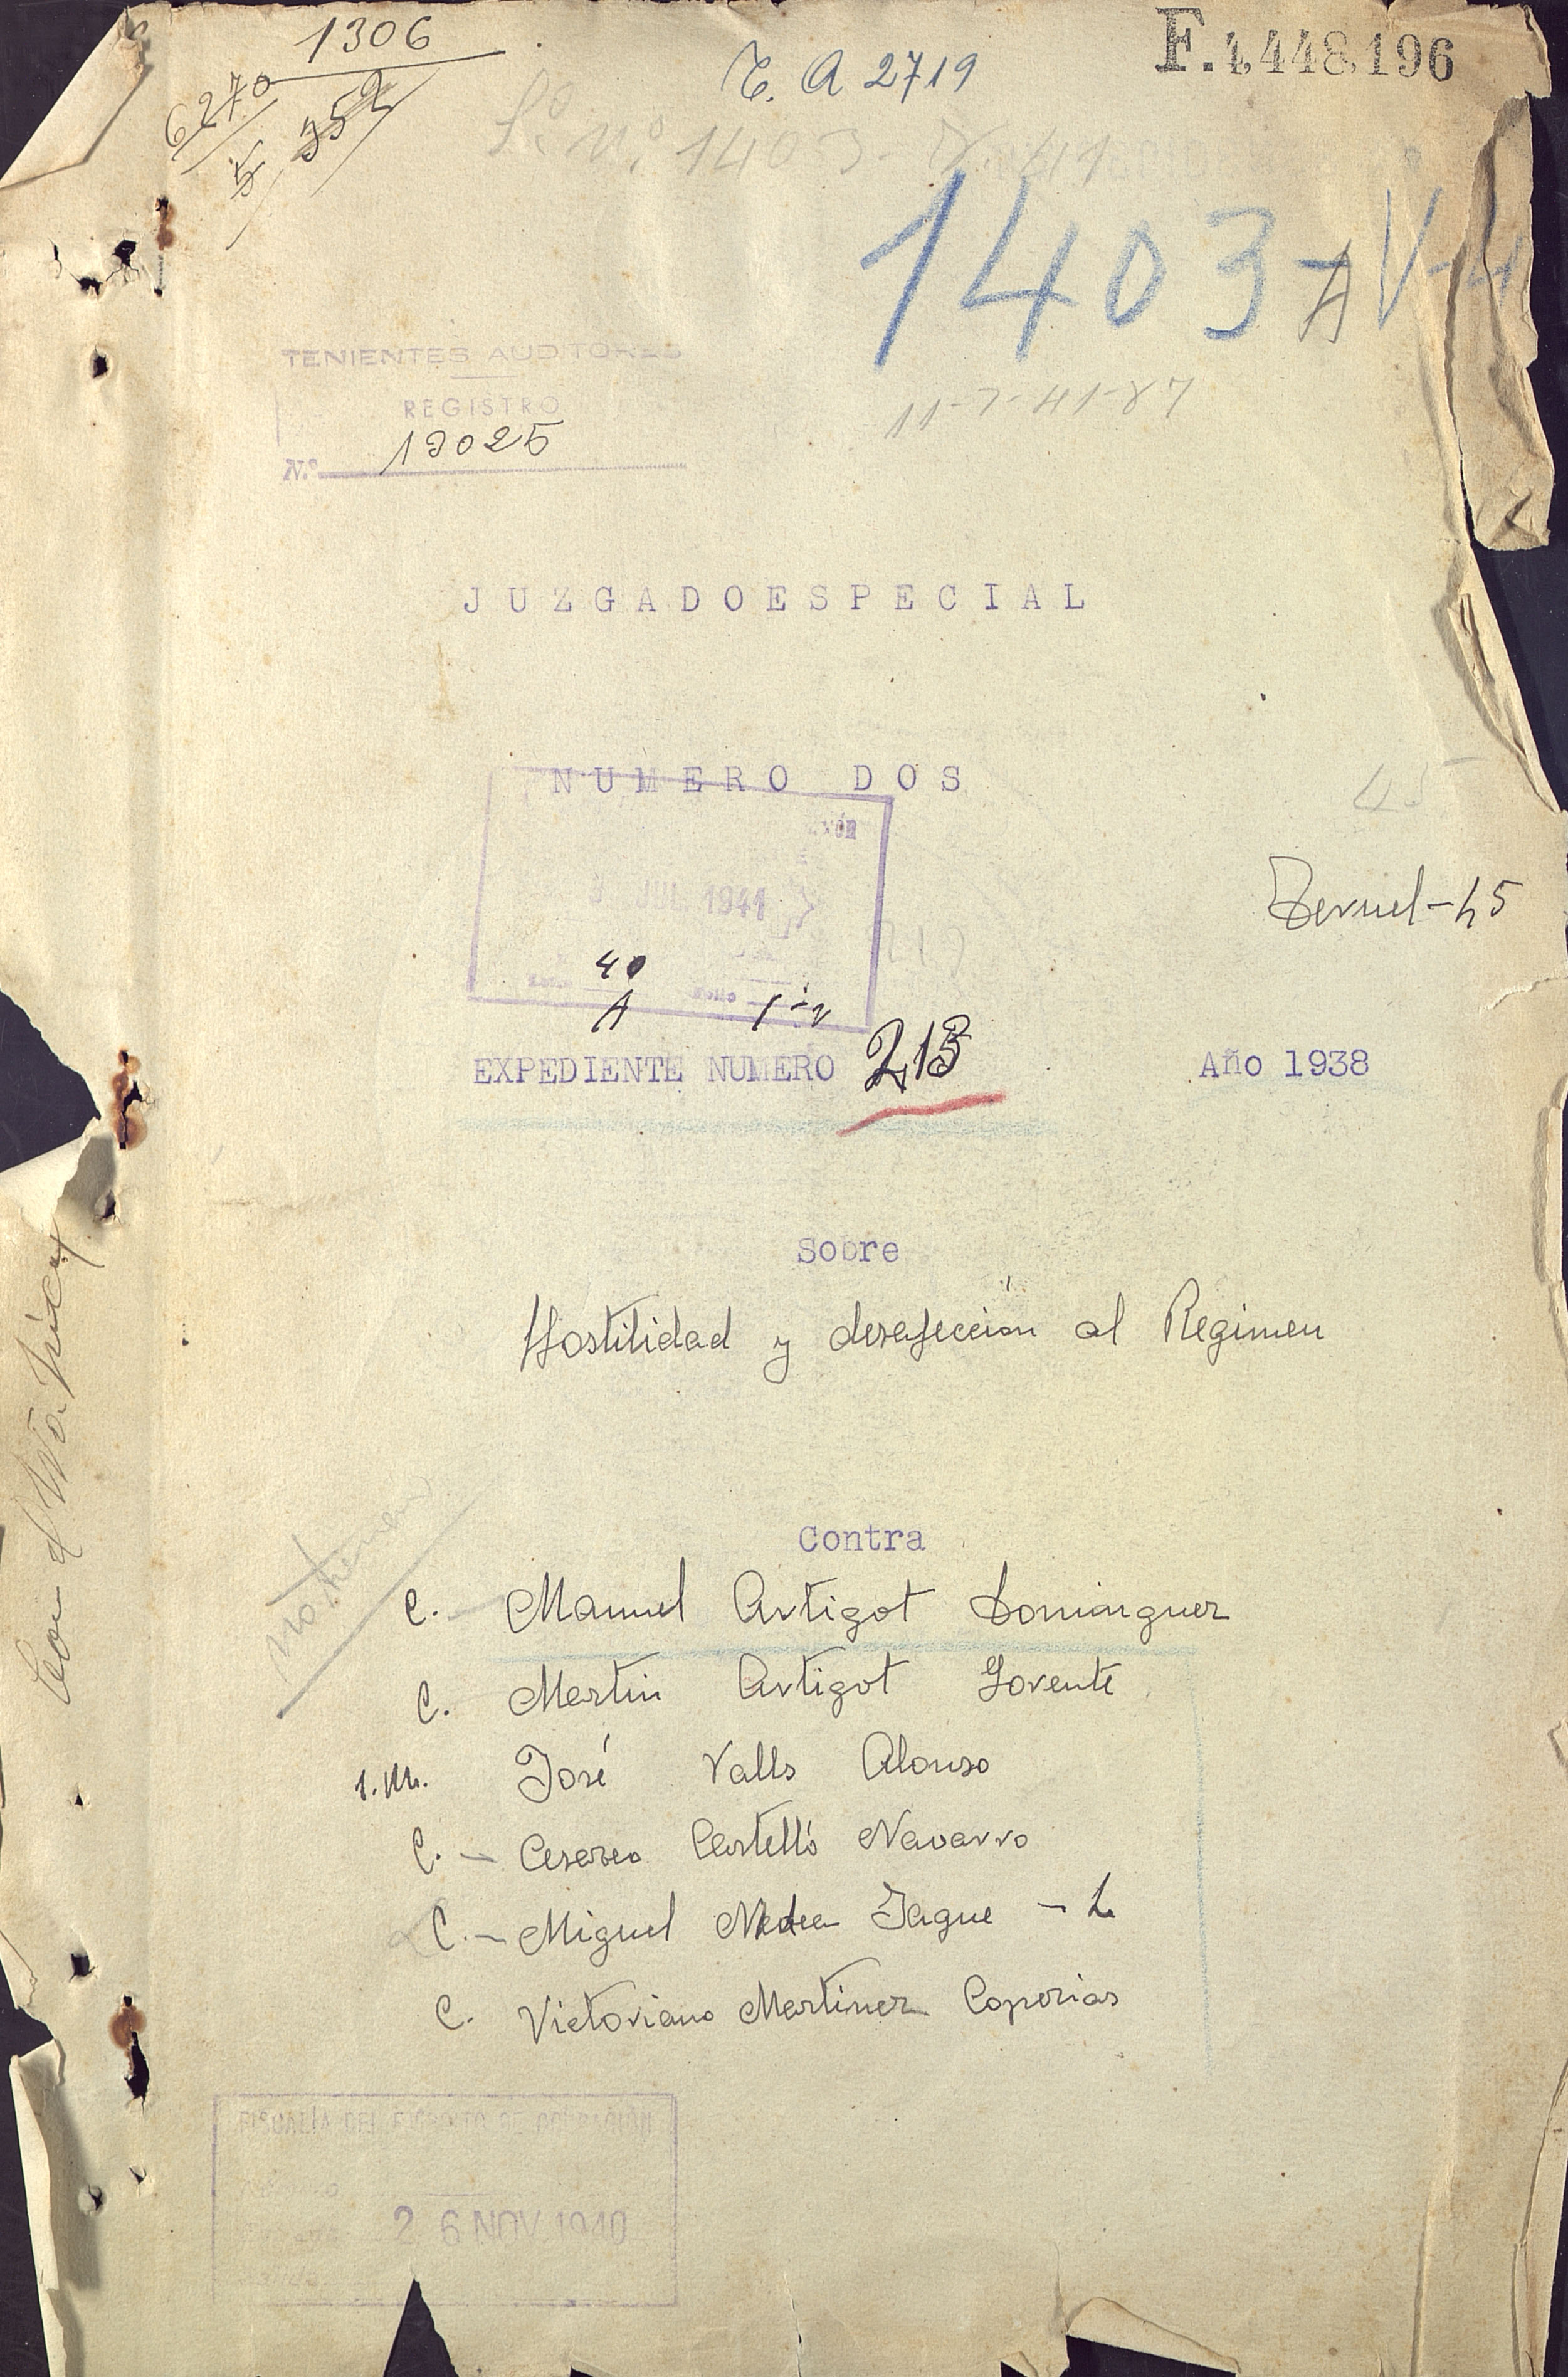 1306
6270
352
T. A 2719
F.4,448,196
Sº. nº. 1403-V-41
1403-V-4
A
TENIENTES AUDITORES
REGISTRO
N.º 19025
11-7-41-87
JUZGADO ESPECIAL
NUMERO DOS
45
JUL 1941
Teruel-45
40
A
EXPEDIENTE NUMERO 213
Año 1938
Sobre
Hostilidad y desafección al Regimen
Contra
C. Manuel Artigot Dominguez
C. Martin Artigot Lorente
1.M. José Valls Alonso
C. - Cesareo Castelló Navarro
C. - Miguel Nadea Jague - L
C. Victoriano Martinez Coperias
FISCALÍA DEL EJERCITO DE OCUPACIÓN
26 NOV 1940